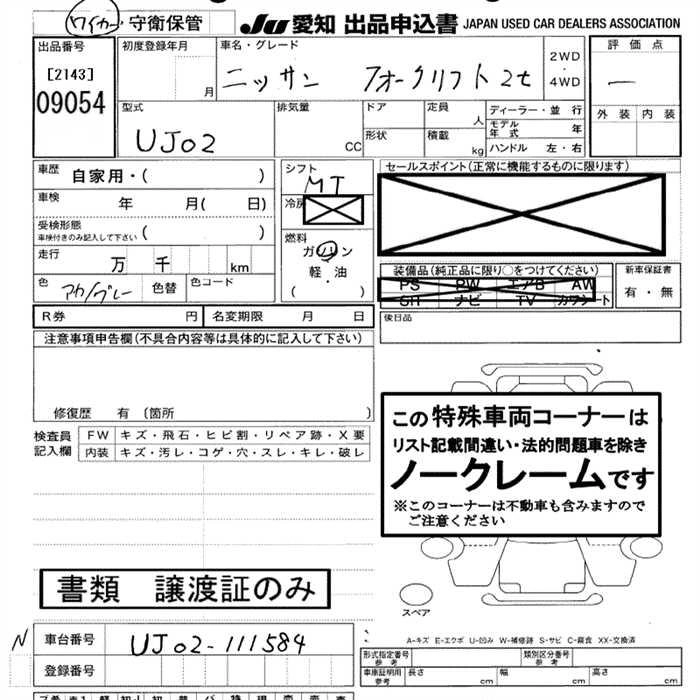 ワイカー・守衛保管
JU 愛知 出品申込書 JAPAN USED CAR DEALERS ASSOCIATION
出品番号
[2143]
09054
初度登録年月
月
車名・グレード
ニッサン フォークリフト2t
2WD
・
4WD
評価点
—
外装 内装
型式
UJ02
排気量
CC
ドア
形状
定員
人
積載
kg
ディーラー・並行
モデル年式 年
ハンドル 左・右
車歴 自家用・( )
車検 年 月( 日)
受検形態
車検付きのみ記入して下さい ( )
走行 万 千 km
色 アカ/グレー 色替 色コード
シフト
MT
冷房
燃料
ガソリン
軽・油
( )
セールスポイント(正常に機能するものに限ります)
装備品(純正品に限り○をつけてください)
PS PW エアB AW
SR ナビ TV カワシート
新車保証書
有・無
R券 円 名変期限 月 日
後日品
注意事項申告欄(不具合内容等は具体的に記入して下さい)
修復歴 有 〔箇所 〕
検査員
記入欄
FW キズ・飛石・ヒビ割・リペア跡・X要
内装 キズ・汚レ・コゲ・穴・スレ・キレ・破レ
この特殊車両コーナーは
リスト記載間違い・法的問題車を除き
ノークレームです
※このコーナーは不動車も含みますので
ご注意ください
書類 譲渡証のみ
スペア
A-キズ E-エクボ U-凹み W-補修跡 S-サビ C-腐食 XX-交換済
N 車台番号 UJ02-111584
登録番号
形式指定番号
参考
類別区分番号
参考
車庫証明用
参考
長さ cm 幅 cm 高さ cm